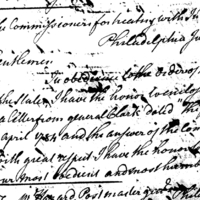 the Commissioners for treating with the
Philadelphia
Gentlemen
In obedience to the orders of
the State, I have the honor to enclose
a letter from general Clark dated "th
april 1784 and the answer of the Com
with great respect I have the honor to
your most obedient and most humb
Mr Hazard Post master general